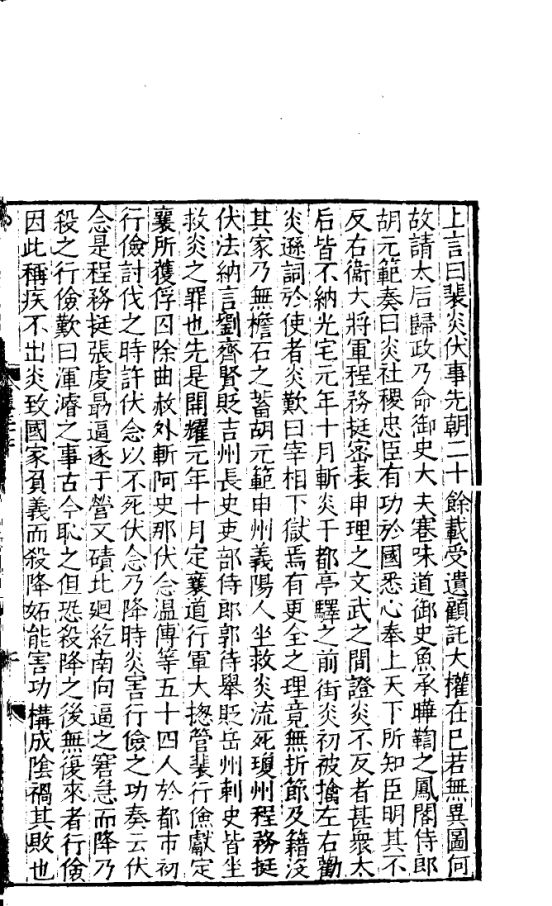 上言曰裴炎伏事先朝二十餘載受遺顧託大權在已若無異圖何
故請太后歸政乃命御史大夫騫味道御史魚承曄鞫之鳳閣侍郎
胡元範奏曰炎社稷忠臣有功於國悉心奉上天下所知臣明其不
反右衞大將軍程務挺密表申理之文武之間證炎不反者甚衆太
后皆不納光宅元年十月斬炎于都亭驛之前街炎初被擒左右勸
炎遜詞於使者炎歎曰宰相下獄焉有更全之理竟無折節及籍沒
其家乃無檐石之蓄胡元範申州義陽人坐救炎流死瓊州程務挺
伏法納言劉齊賢貶吉州長史吏部侍郎郭待舉貶岳州刺史皆坐
救炎之罪也先是開耀元年十月定襄道行軍大揔管裴行儉獻定
襄所獲俘囚除曲赦外斬阿史那伏念温傅等五十四人於都市初
行儉討伐之時許伏念以不死伏念乃降時炎害行儉之功奏云伏
念是程務挺張虔勗逼逐于營又磧北迴紇南向逼之窘急而降乃
殺之行儉歎曰渾濬之事古今恥之但恐殺降之後無復來者行儉
因此稱疾不出炎致國家負義而殺降妬能害功構成陰禍其敗也